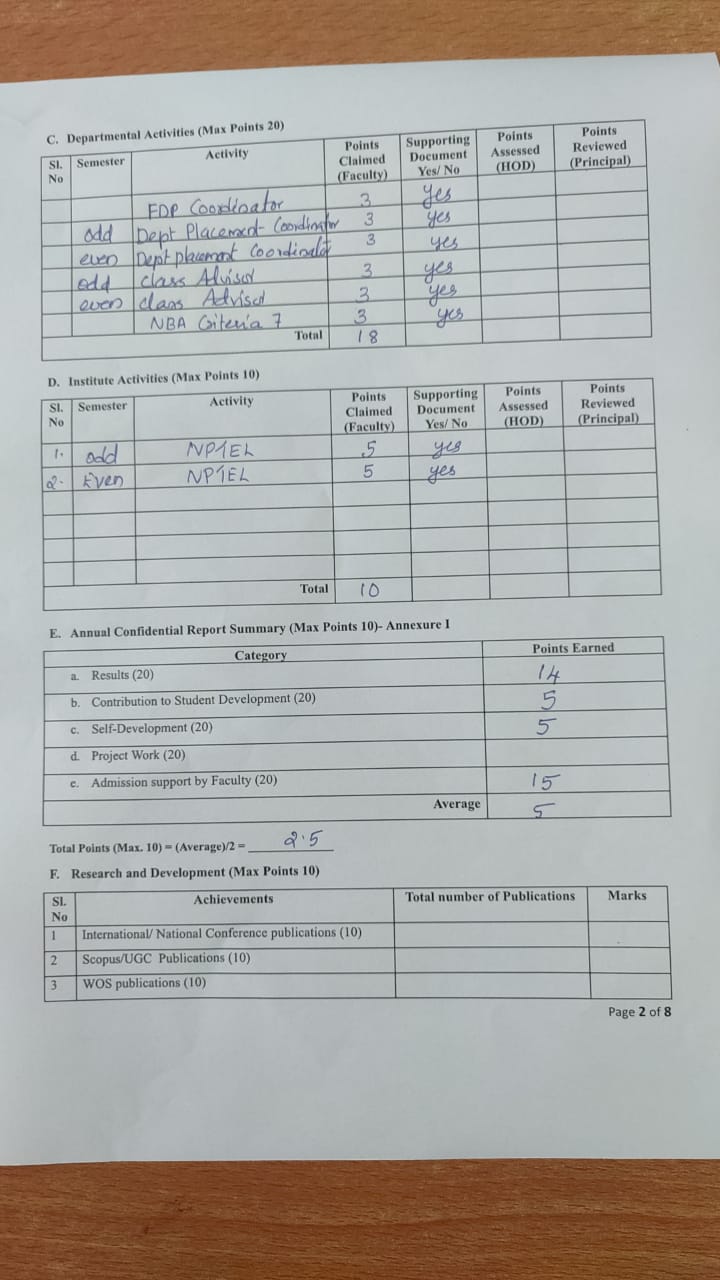 C. Departmental Activities (Max Points 20)
Sl. No | Semester | Activity | Points Claimed (Faculty) | Supporting Document Yes/ No | Points Assessed (HOD) | Points Reviewed (Principal)
FDP Coordinator | 3 | yes
odd | Dept Placement Coordinator | 3 | yes
even | Dept placement Coordinator | 3 | yes
odd | class Advisor | 3 | yes
even | class Advisor | 3 | yes
NBA Criteria 7 | 3 | yes
Total | 18
D. Institute Activities (Max Points 10)
Sl. No | Semester | Activity | Points Claimed (Faculty) | Supporting Document Yes/ No | Points Assessed (HOD) | Points Reviewed (Principal)
1. | odd | NPTEL | 5 | yes
2. | Even | NPTEL | 5 | yes
Total | 10
E. Annual Confidential Report Summary (Max Points 10)- Annexure I
Category | Points Earned
a. Results (20) | 14
b. Contribution to Student Development (20) | 5
c. Self-Development (20) | 5
d. Project Work (20)
e. Admission support by Faculty (20) | 15
Average | 5
Total Points (Max. 10) = (Average)/2 = 2.5
F. Research and Development (Max Points 10)
Sl. No | Achievements | Total number of Publications | Marks
1 | International/ National Conference publications (10)
2 | Scopus/UGC Publications (10)
3 | WOS publications (10)
Page 2 of 8